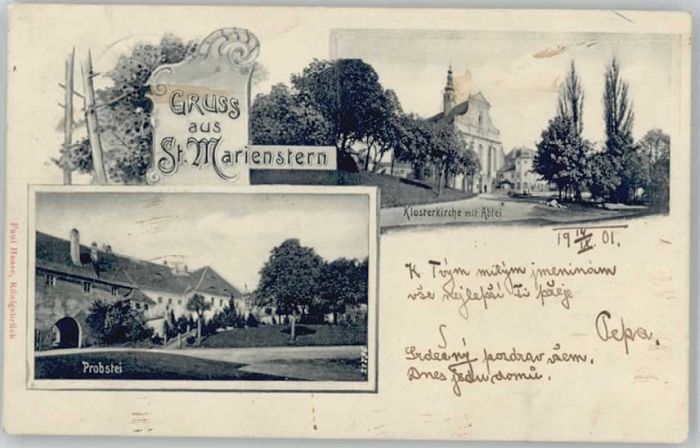 GRUSS
aus
St. Marienstern
Klosterkirche mit Abtei
19 14/IX 01.
K Tvým milým jmeninám
vše nejlepší Ti přeje
Pepa.
Srdečný pozdrav všem.
Dnes jedu domů.
Probstei
Paul Haase, Königsbrück